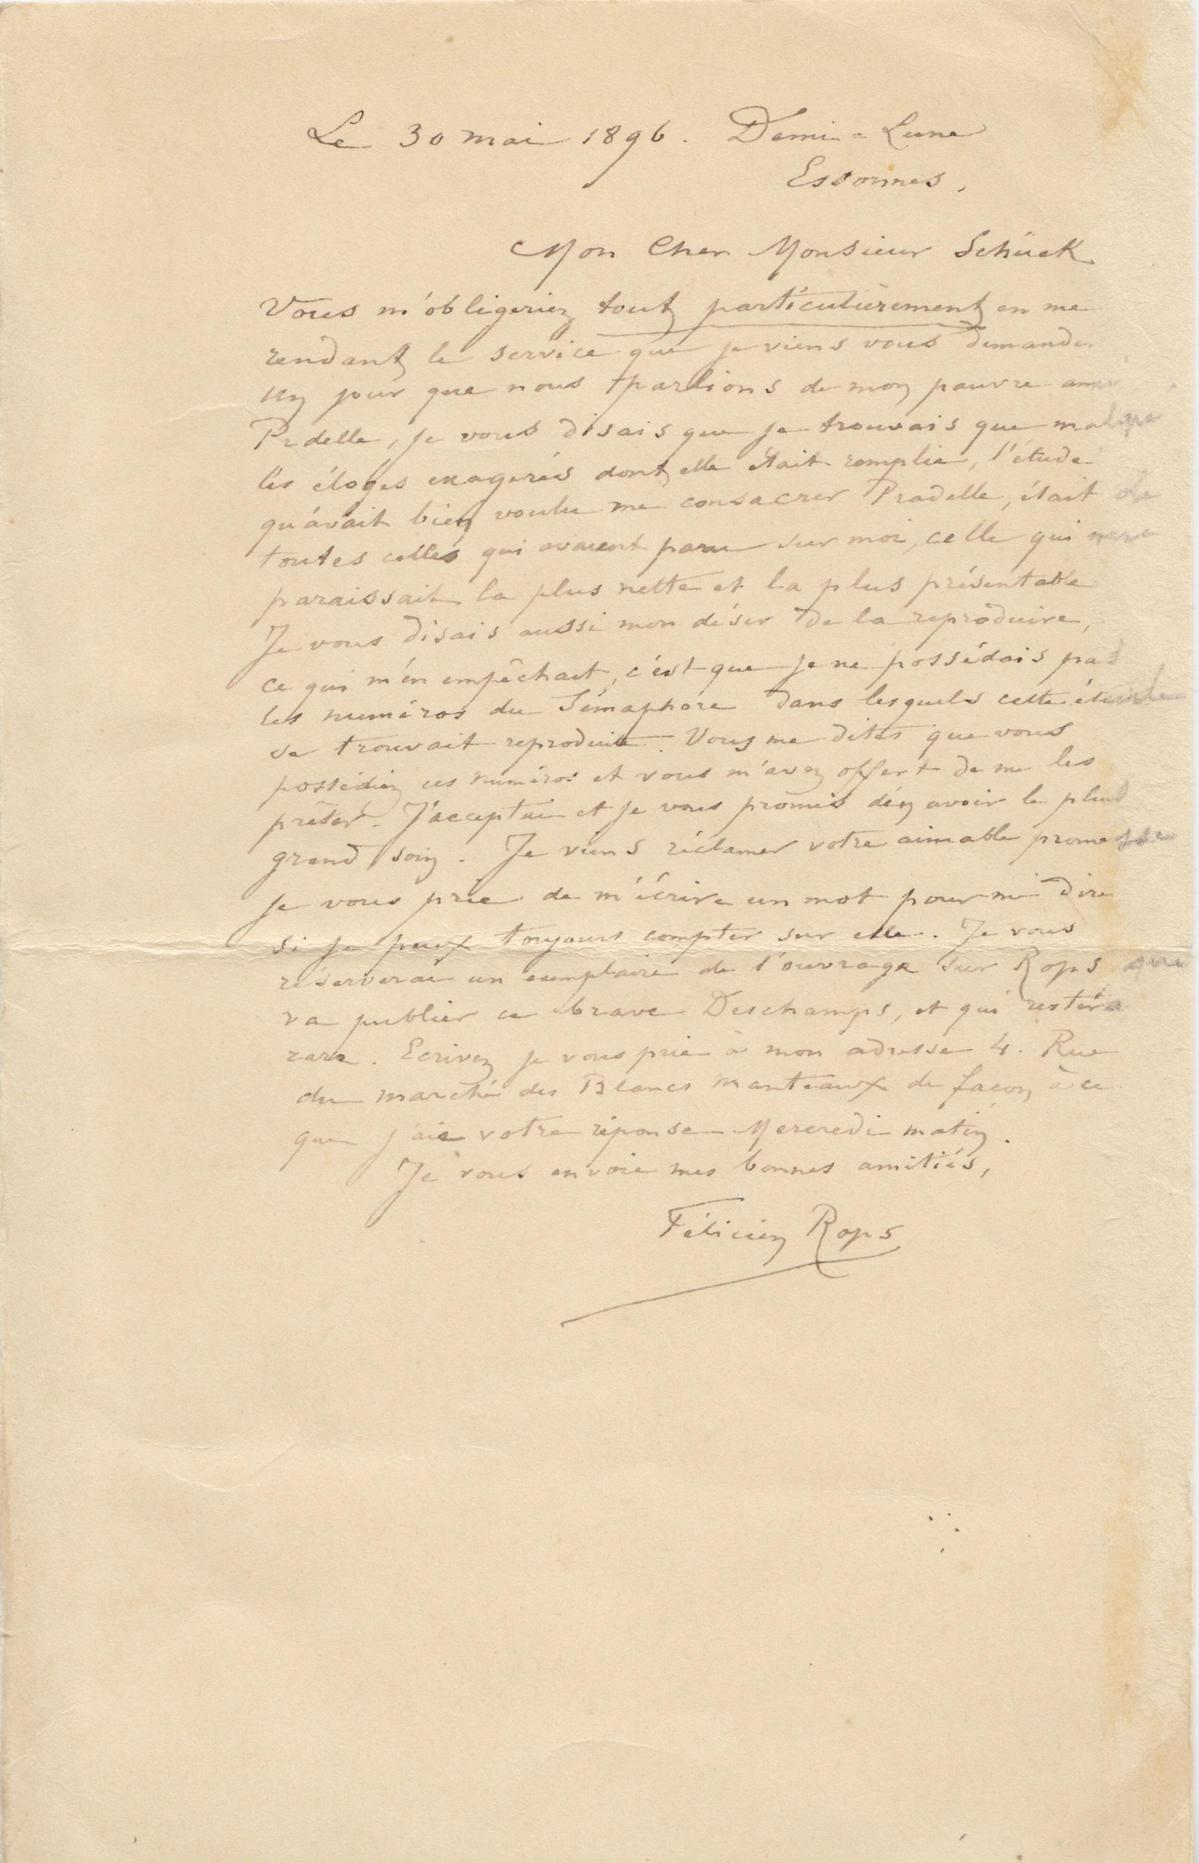 Le 30 mai 1896. Demi-Lune
Essonnes.
Mon Cher Monsieur Schück
Vous m'obligeriez tout particulièrement en me
rendant le service que je viens vous demander
Un jour que nous parlions de mon pauvre ami
Pradelle, je vous disais que je trouvais que malgré
les éloges exagérés dont elle était remplie, l'étude
qu'avait bien voulu me consacrer Pradelle, était de
toutes celles qui avaient paru sur moi, celle qui me
paraissait la plus nette et la plus présentable
Je vous disais aussi mon désir de la reproduire,
ce qui m'en empêchait, c'est que je ne possédais pas
les numéros du Sémaphore dans lesquels cette étude
se trouvait reproduite. Vous me dites que vous
possédiez ces numéros et vous m'avez offert de me les
prêter. J'acceptai et je vous promis d'en avoir le plus
grand soin. Je viens réclamer votre aimable promesse
Je vous prie de m'écrire un mot pour me dire
si je peux toujours compter sur elle. Je vous
réserverai un exemplaire de l'ouvrage sur Rops que
va publier ce brave Deschamps, et qui restera
rare. Ecrivez je vous prie à mon adresse 4. Rue
du marché des Blancs manteaux de façon à ce
que j'aie votre réponse Mercredi matin.
Je vous envoie mes bonnes amitiés,
Félicien Rops